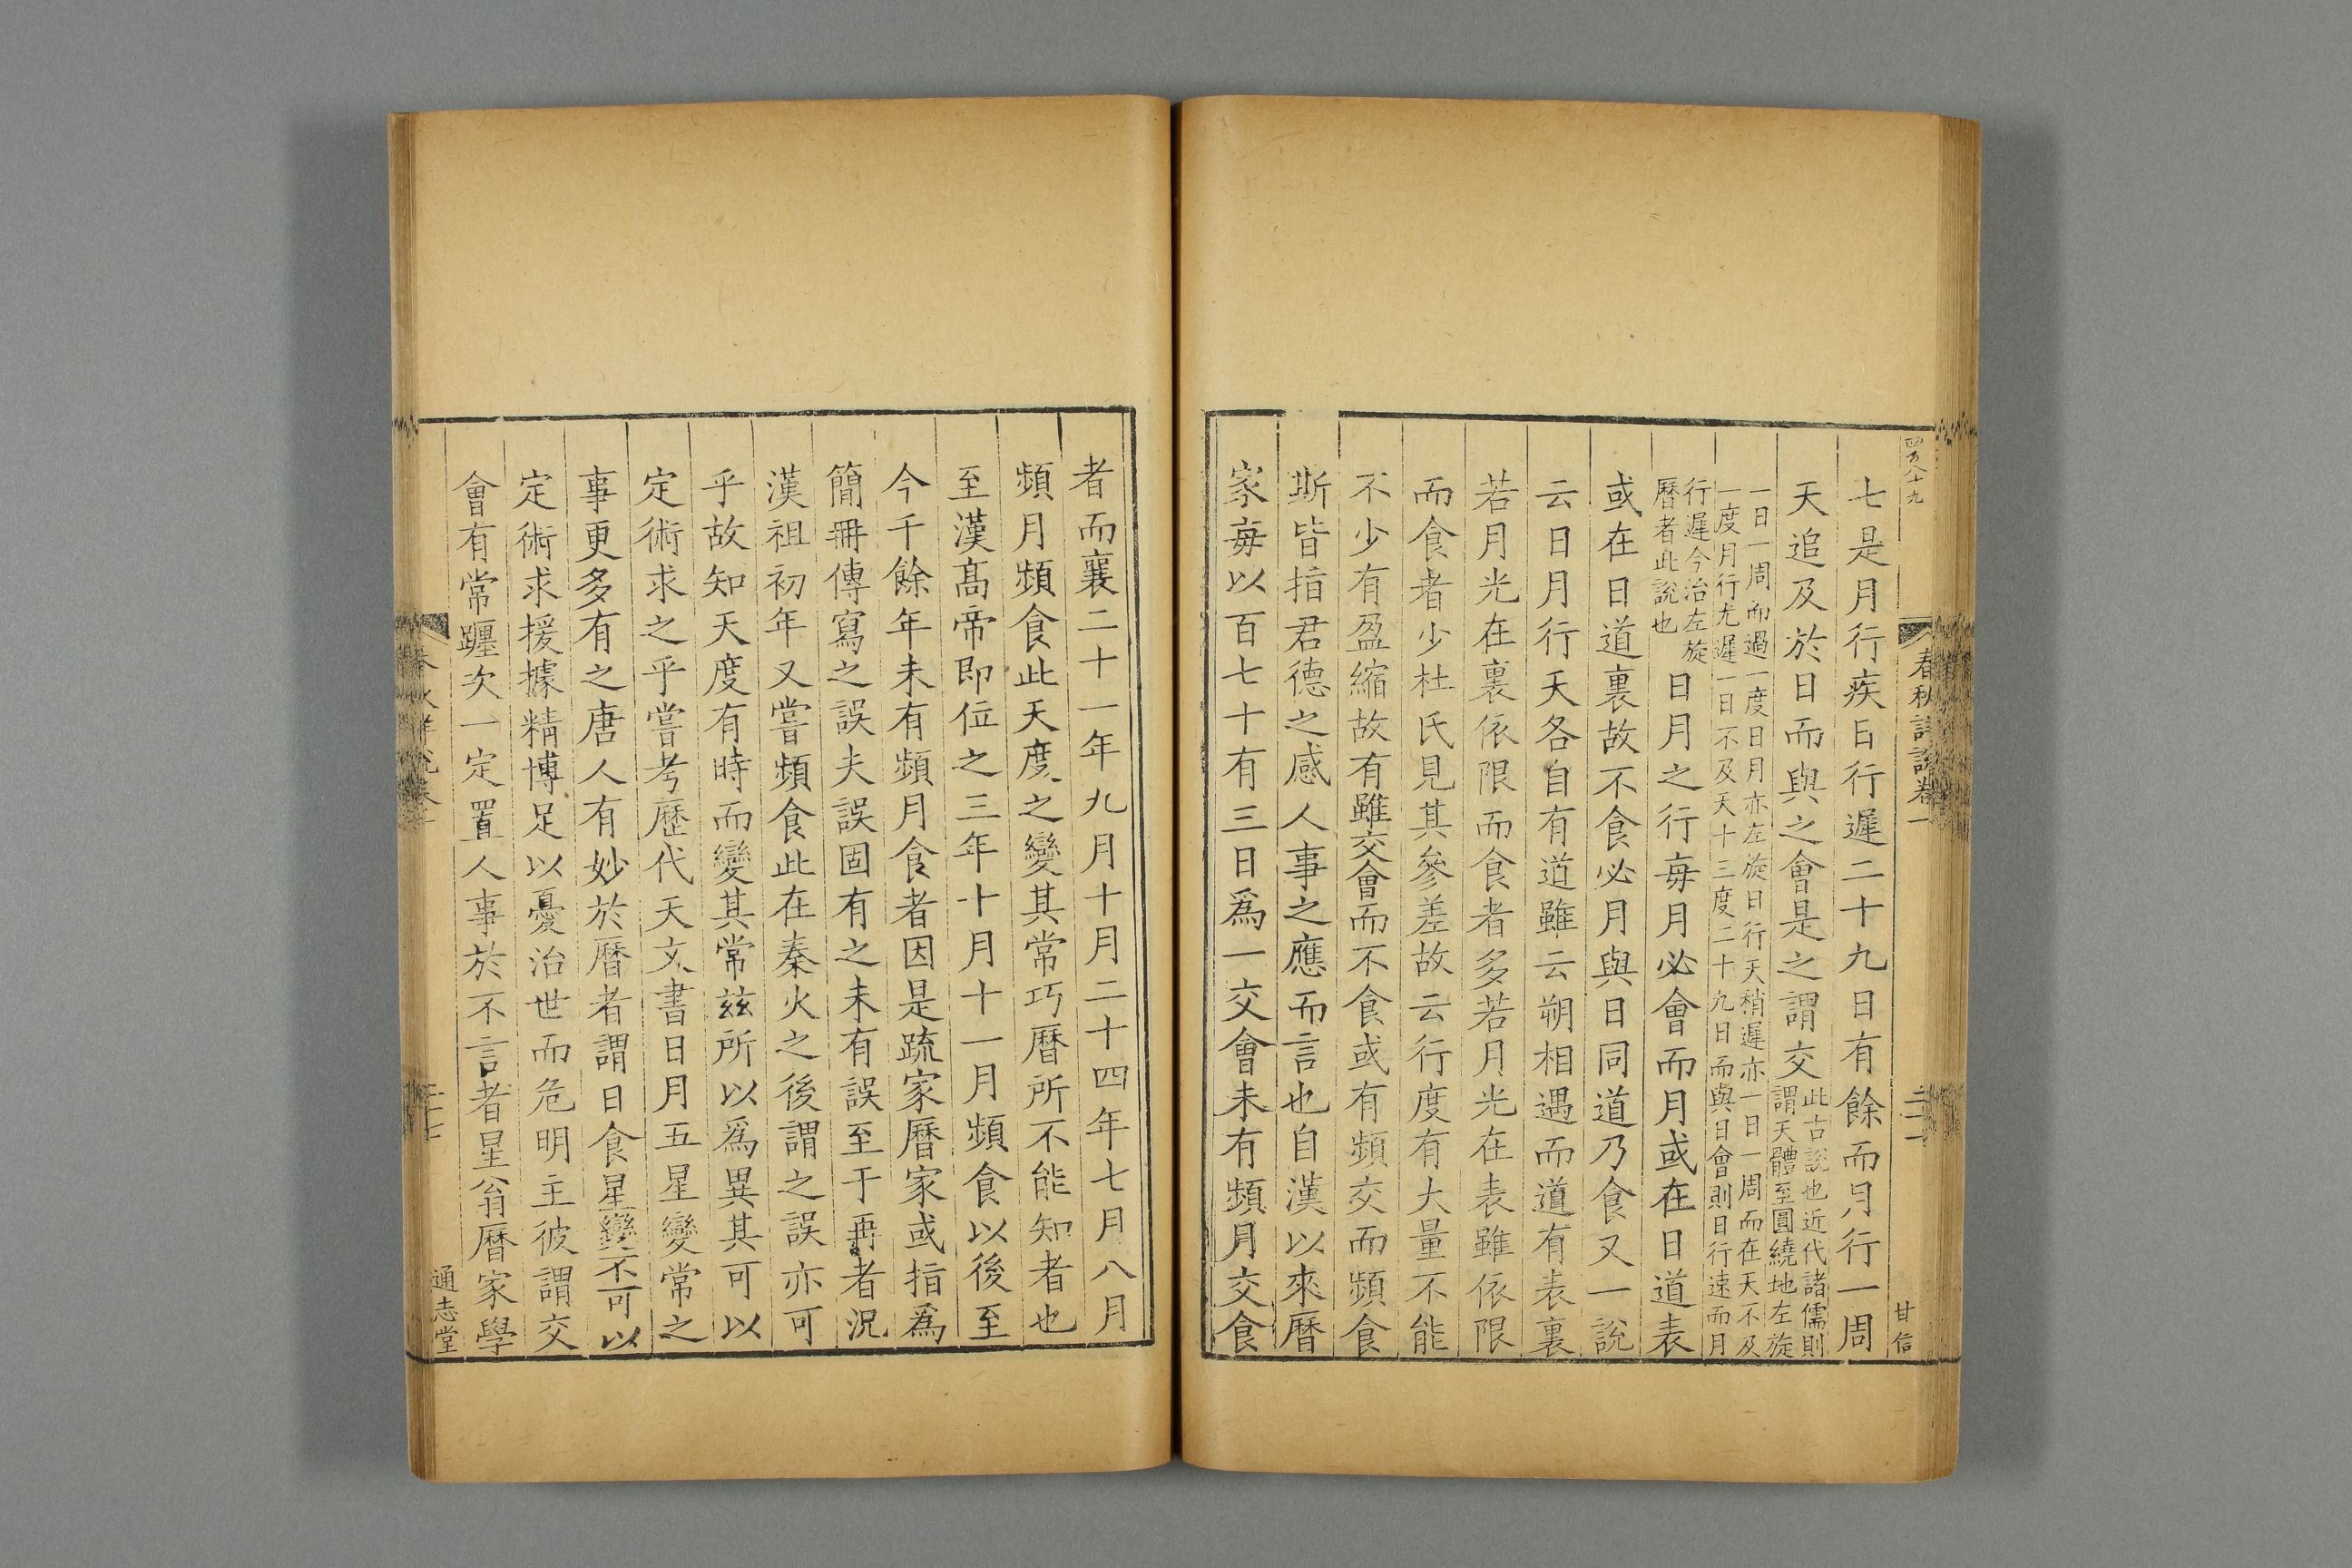 四百八十九
春秋詳說卷一
甘信
七是月行疾日行遲二十九日有餘而月行一周
天追及於日而與之會是之謂交此古說也近代諸儒則
謂天體至圓繞地左旋
一日一周而過一度日月亦左旋日行天稍遲亦一日一周而在天不及
一度月行尤遲一日不及天十三度二十九日而與日會則日行速而月
行遲今治左旋
曆者此說也
日月之行每月必會而月或在日道表
或在日道裏故不食必月與日同道乃食又一說
云日月行天各自有道雖云朔相遇而道有表裏
若月光在裏依限而食者多若月光在表雖依限
而食者少杜氏見其參差故云行度有大量不能
不少有盈縮故有雖交會而不食或有頻交而頻食
斯皆指君德之感人事之應而言也自漢以來曆
家每以百七十有三日爲一交會未有頻月交食
者而襄二十一年九月十月二十四年七月八月
頻月頻食此天度之變其常巧曆所不能知者也
至漢髙帝即位之三年十月十一月頻食以後至
今千餘年未有頻月食者因是疏家曆家或指爲
簡冊傳寫之誤夫誤固有之未有誤至于再者況
漢祖初年又嘗頻食此在秦火之後謂之誤亦可
乎故知天度有時而變其常兹所以爲異其可以
定術求之乎嘗考歷代天文書日月五星變常之
事更多有之唐人有妙於曆者謂日食星變不可以
定術求援據精博足以憂治世而危明主彼謂交
會有常躔次一定置人事於不言者星翁曆家學
通志堂